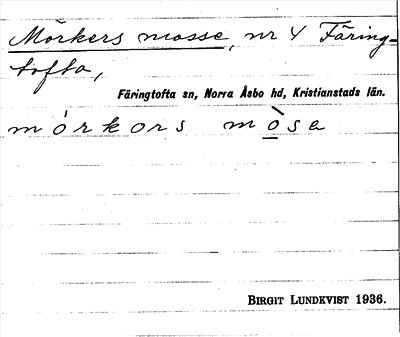 Mörkers mosse, nr 4 Färing-
tofta,
Färingtofta sn, Norra Åsbo hd, Kristianstads län.
mórkors mòsa
BIRGIT LUNDKVIST 1936.